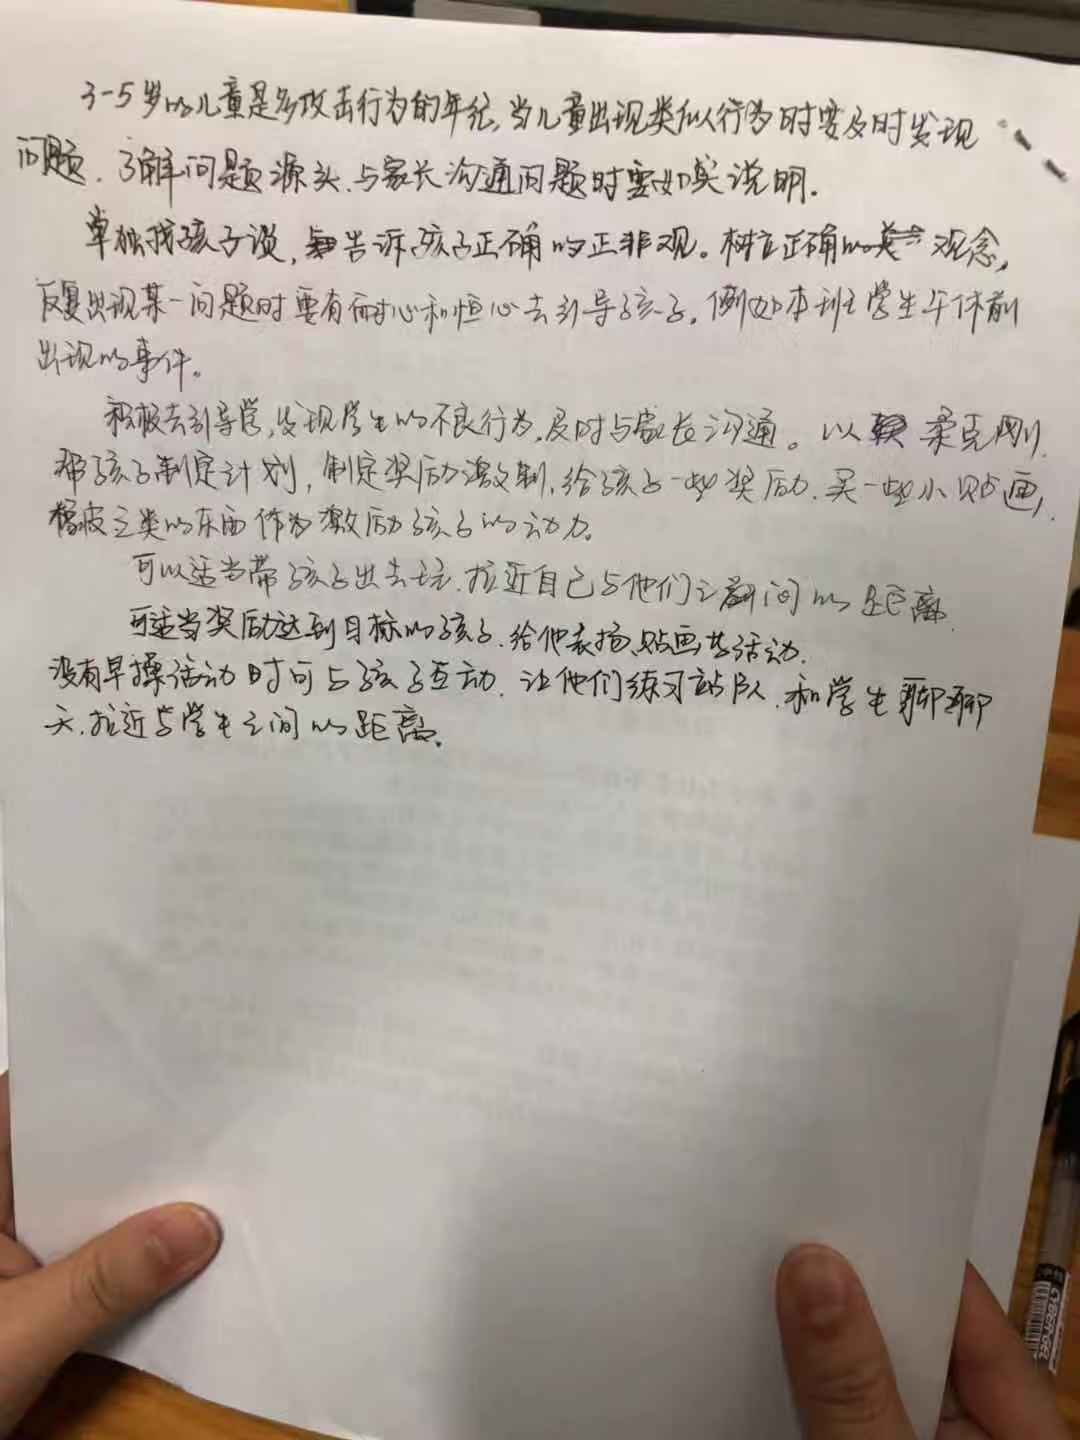 3-5岁的儿童是多攻击行为的年纪,当儿童出现类似行为时要及时发现
问题.了解问题源头.与家长沟通问题时要如实说明.
单独找孩子谈,告诉孩子正确的正非观。树立正确的观念,
反复出现某一问题时要有耐心和恒心去引导孩子.例如本班学生午休前
出现的事件。
积极去引导学,发现学生的不良行为,及时与家长沟通。以柔克刚.
帮孩子制定计划,制定奖励激制,给孩子一些奖励.买一些小贴画,
橡皮之类的东西作为激励孩子的动力。
可以适当带孩子出去玩.拉近自己与他们之间的距离.
可适当奖励达到目标的孩子.给他表扬、贴画等活动.
没有早操活动时可与孩子互动.让他们练习站队.和学生聊聊
天.拉近与学生之间的距离.